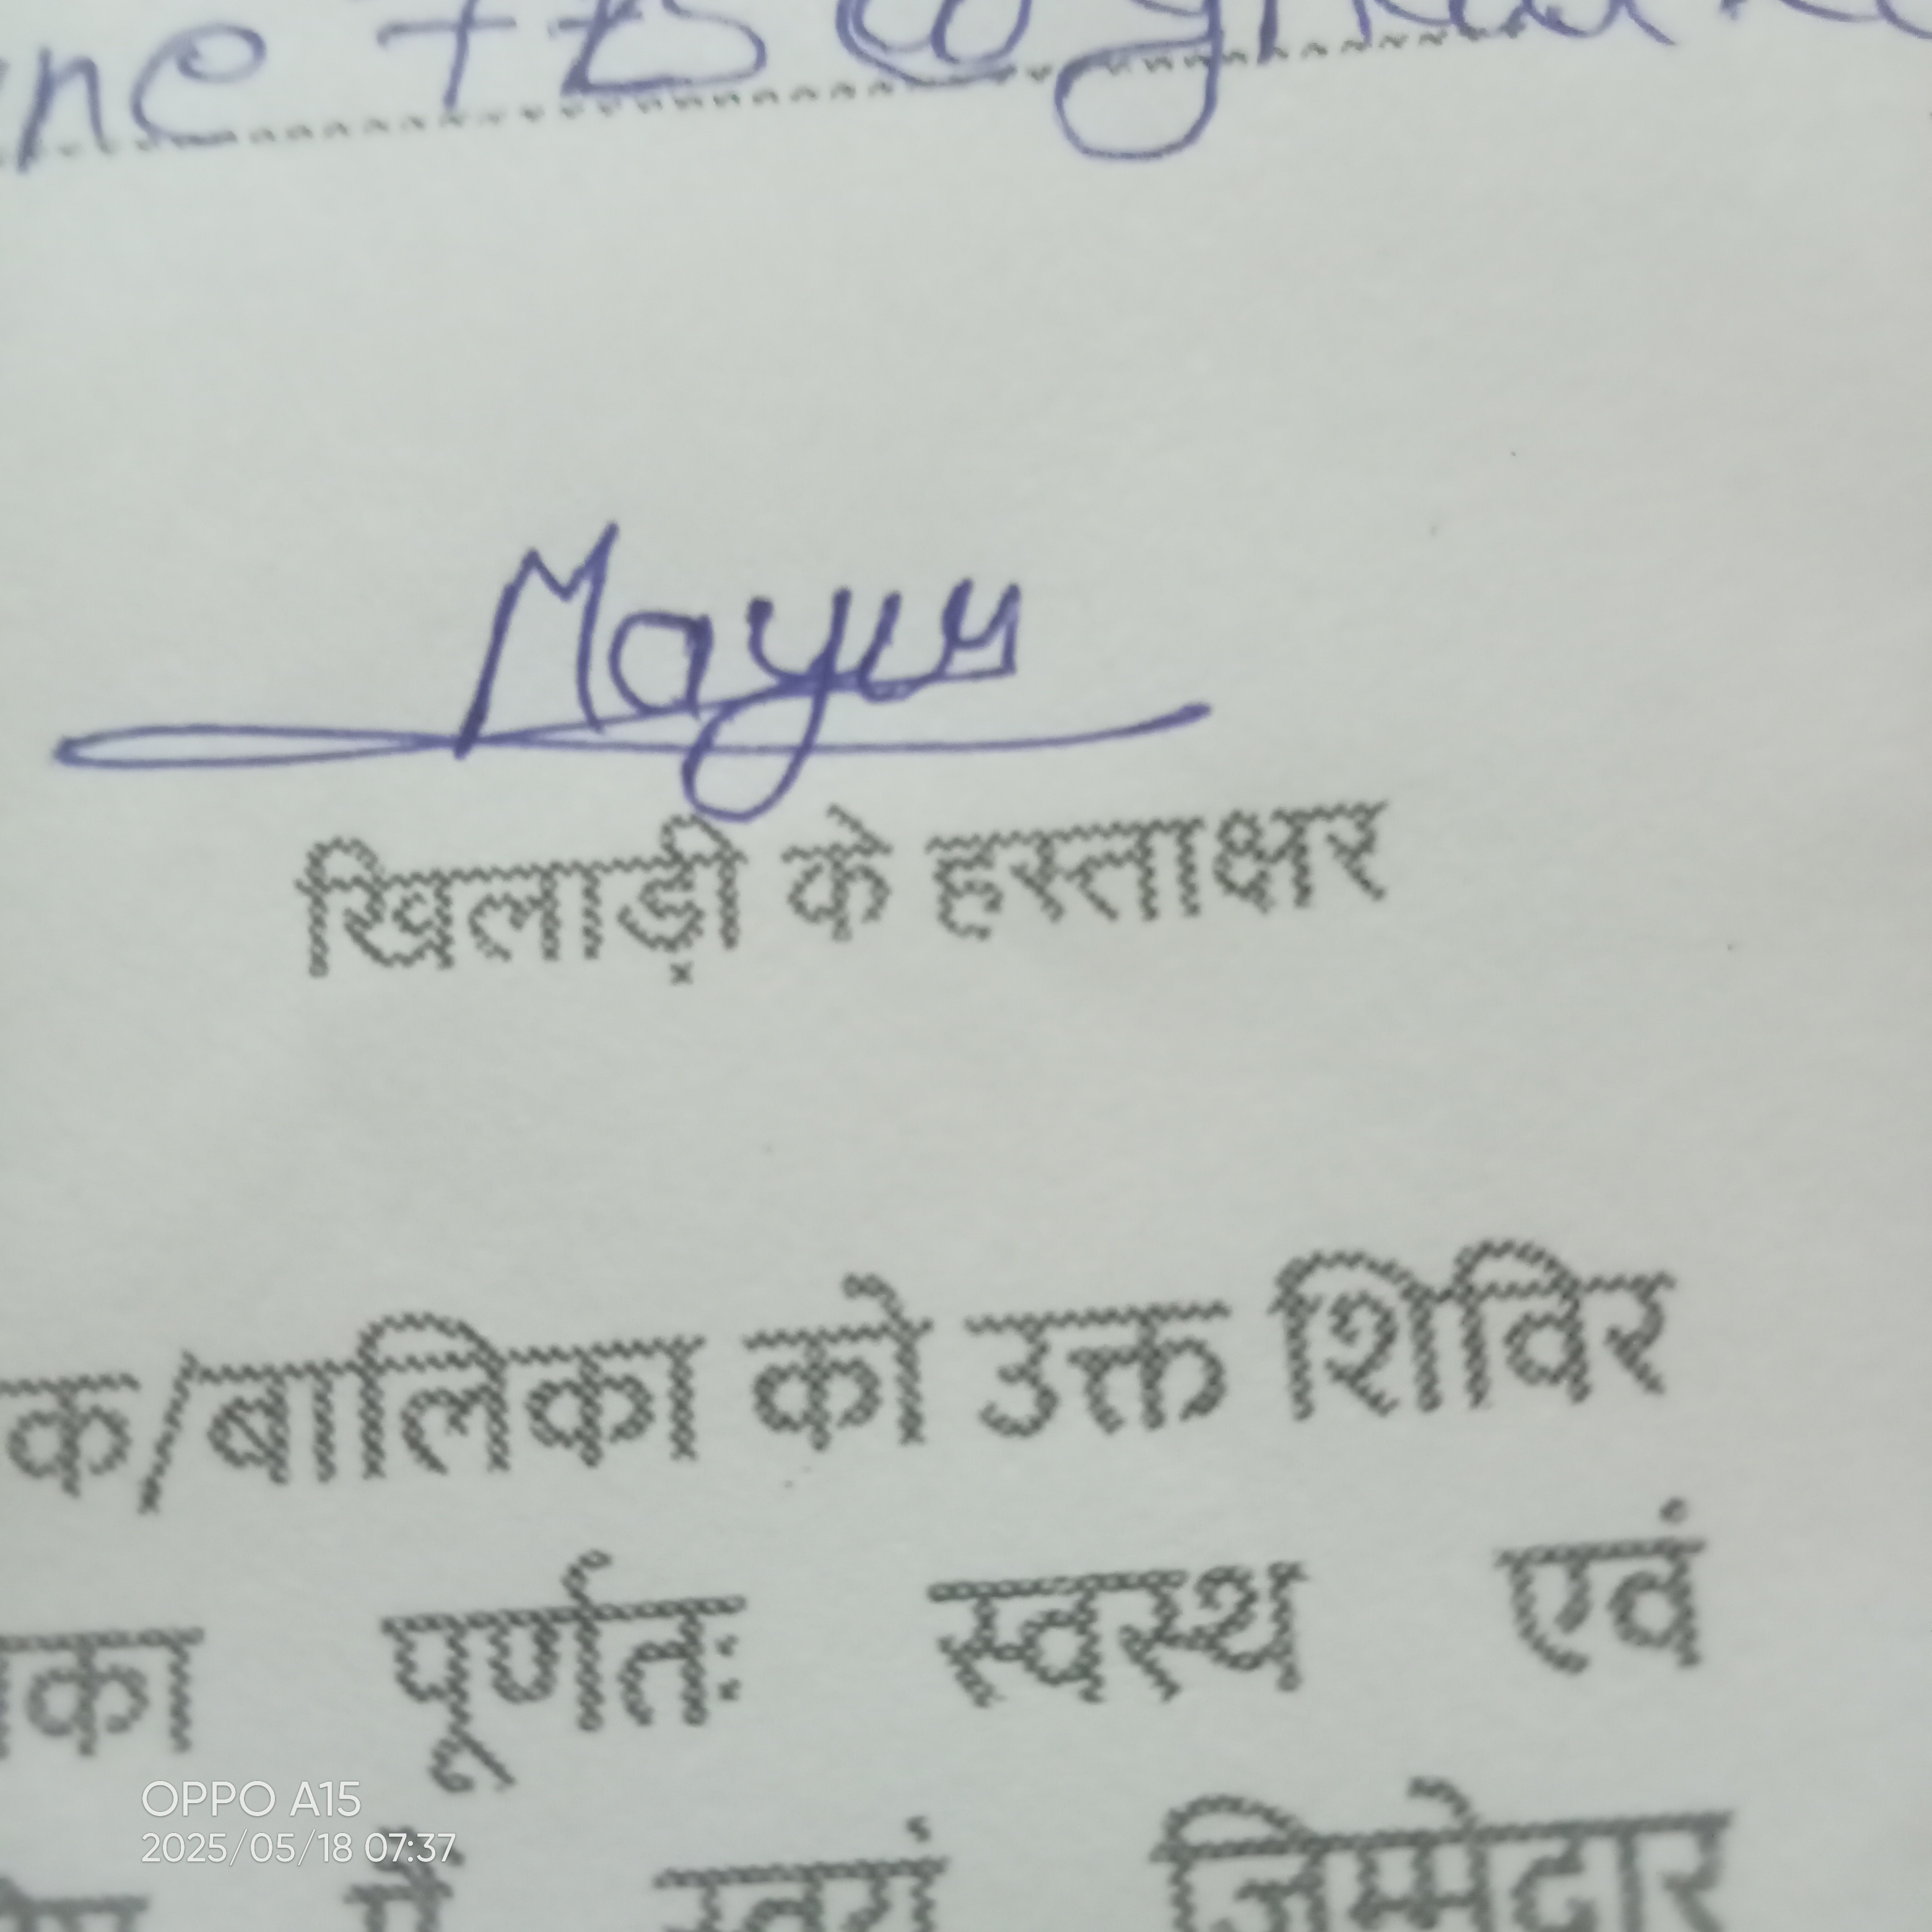 Mayur
खिलाड़ी के हस्ताक्षर
क/बालिका को उक्त शिविर
का पूर्णतः स्वस्थ एवं
में स्वयं जिम्मेदार
OPPO A15
2025/05/18 07:37